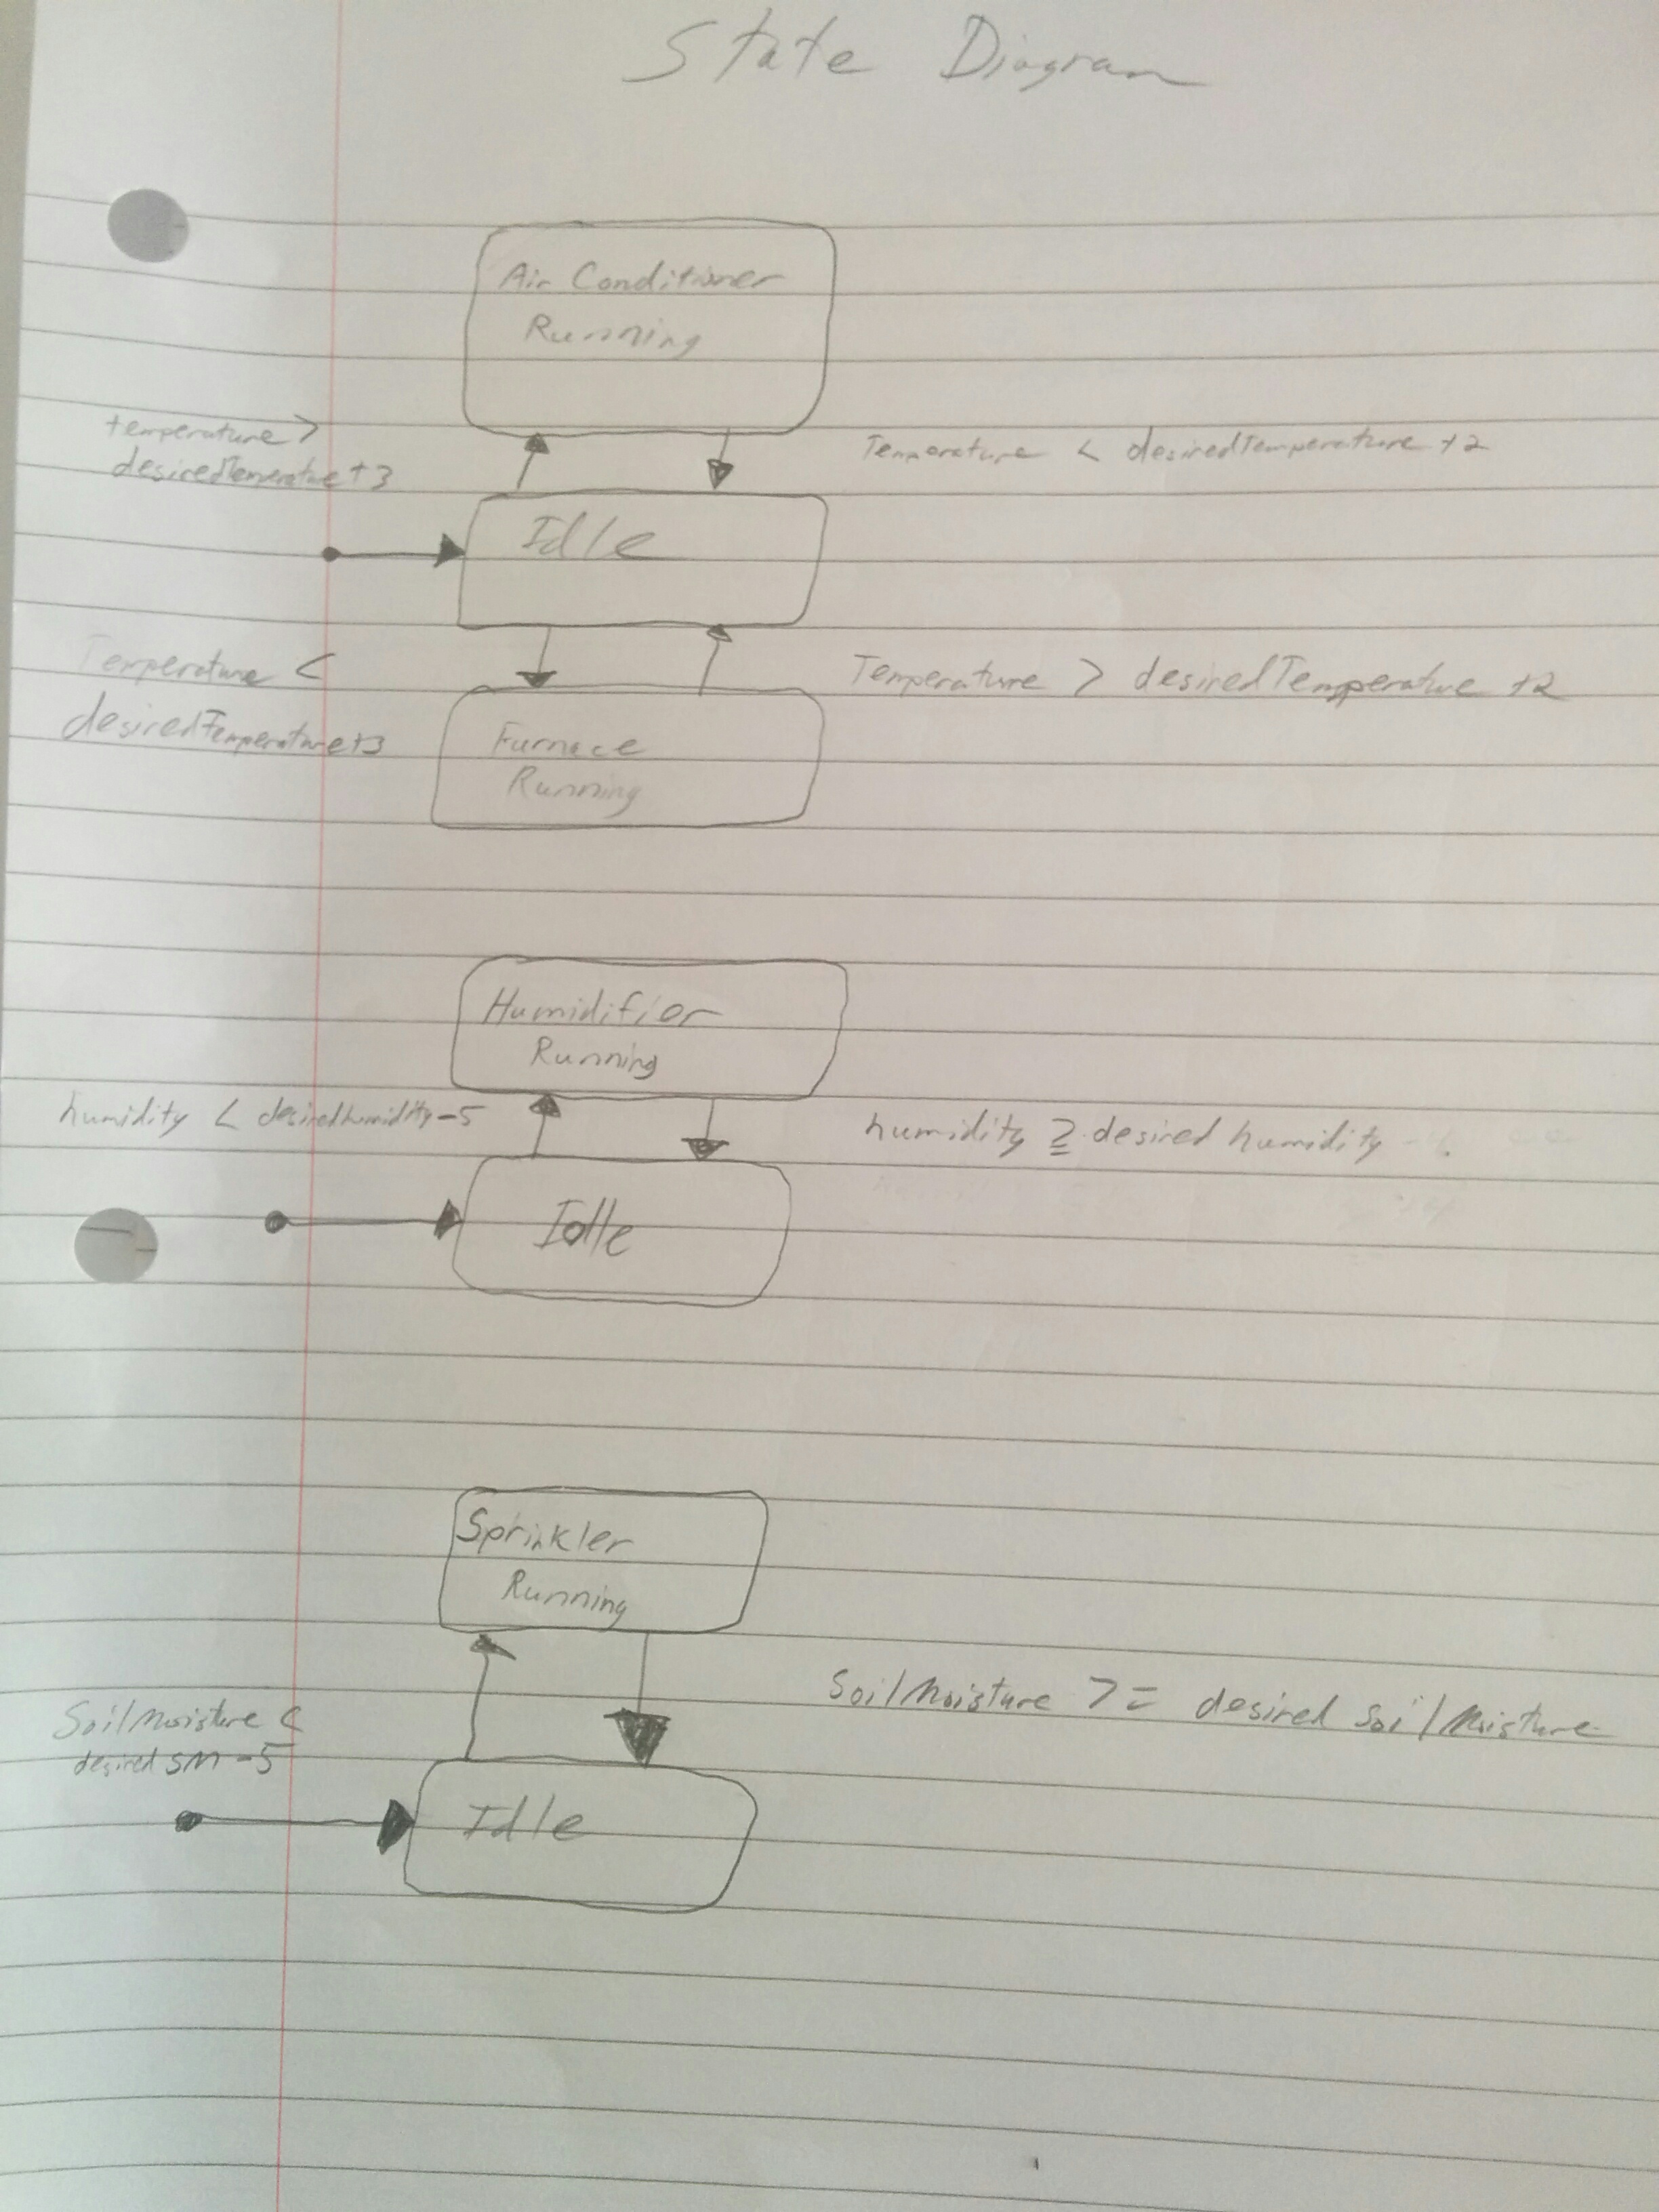 State Diagram
Air Conditioner
Running
temperature >
desiredTemperature+3
Temperature < desiredTemperature +2
Idle
Temperature <
desiredTemperature+3
Temperature > desiredTemperature +2
Furnace
Running
Humidifier
Running
humidity < desiredhumidity-5
humidity ≥ desired humidity
Idle
Sprinkler
Running
SoilMoisture <
desired SM-5
SoilMoisture >= desired SoilMoisture
Idle